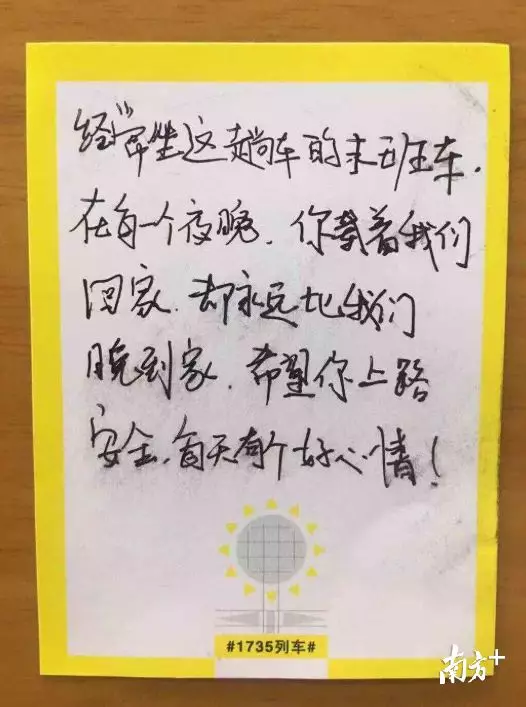 经常坐这趟车的末班车.
在每一个夜晚.你载着我们
回家.却永远比我们
晚到家.希望你上路
安全.每天有个好心情!
#1735列车#
南方+